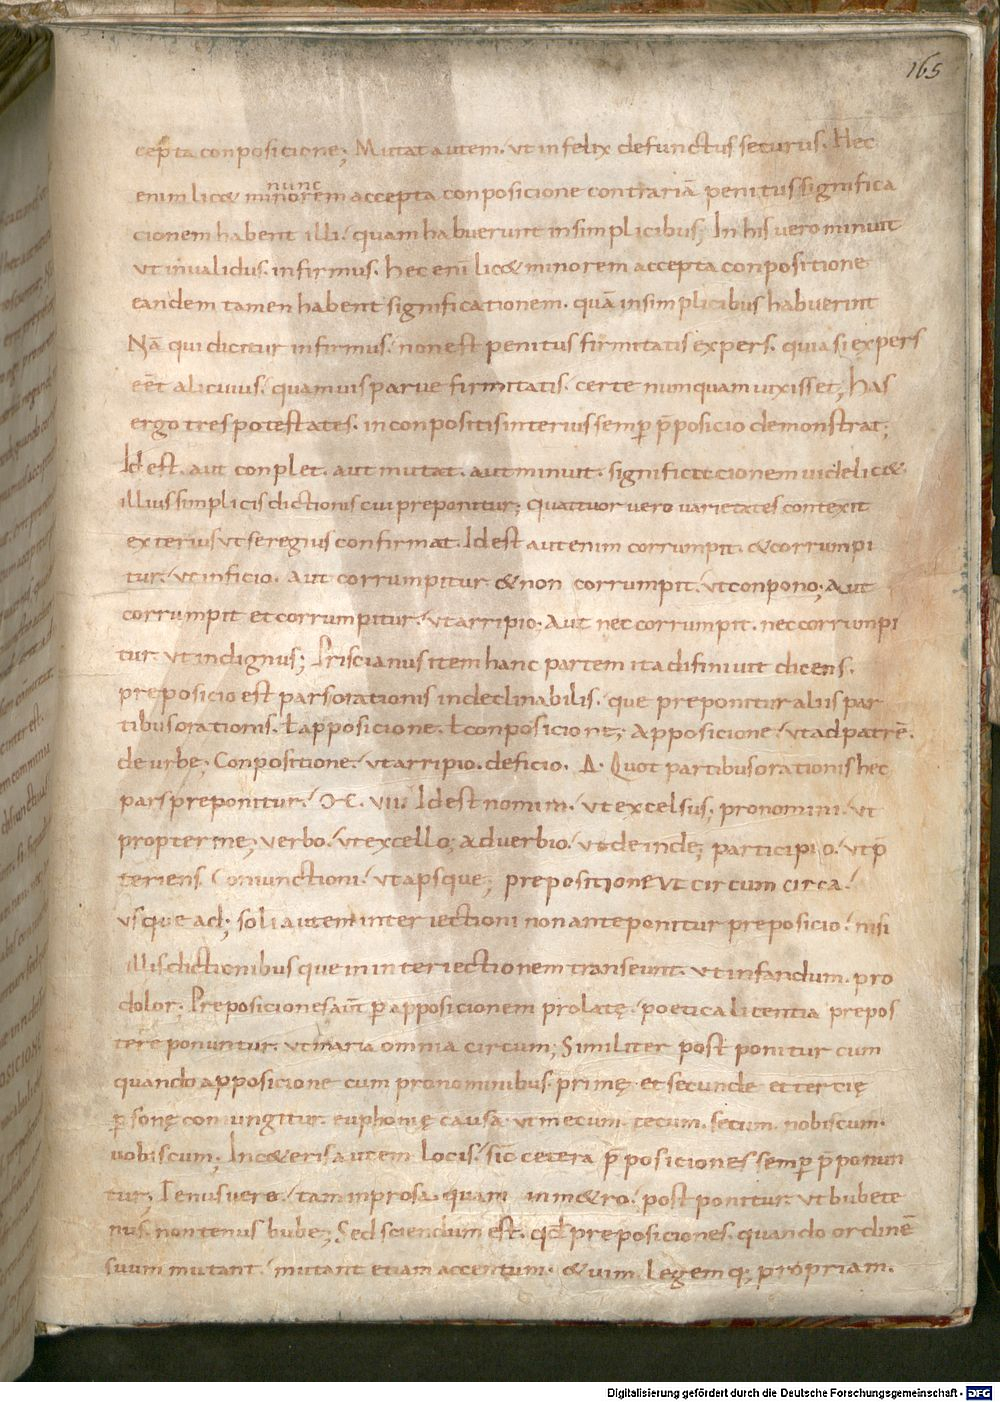 165
cepta conposicione; Mutat autem. ut infelix defunctus securus. Hec
nunc
enim lic& minorem accepta conposicione contrariā penitus significa
cionem habent illi. quam habuerunt in simplicibus; In his vero minuit
ut invalidus. infirmus. hec enī lic& minorem accepta conpositione
eandem tamen habent significationem. quā in simplicibus habuerint
Nā qui dicitur infirmus. non est penitus firmitatis expers. quia si expers
eēt alicuius. quamuis parve firmitatis. certe numquam vixisset; has
ergo tres potestates. in conpositis interius semp̄ p̄posicio demonstrat;
Id est. aut conplet. aut mutat. aut minuit. significationem videlic&
illius simplicis dictionis cui preponitur; Quattuor vero varietates contexit
exterius ut seregius confirmat. Id est aut enim corrumpit. & corrumpi
tur. ut inficio. Aut corrumpitur & non corrumpit. ut conpono; Aut
corrumpit et corrumpitur. ut arripio. Aut nec corrumpit. nec corrumpi
tur. ut indignus; Priscianus item hanc partem ita difiniuit dicens.
preposicio est pars orationis indeclinabilis. que preponitur aliis par
tibus orationis. ł apposicione. ł conposicione; Apposicione. ut ad patrē.
de urbe; Conpositione. ut arripio. deficio. Δ. Quot partibus orationis hec
pars preponitur. VII. Id est nomini. ut excelsus; pronomini. ut
propter me; verbo. ut excello; adverbio. ut deinde; participio. ut p̄
teriens. Coniunctioni. ut apsque; prepositione ut circum circa.
usque ad; soli autem interiectioni non anteponitur preposicio. nisi
illis dictionibus que in interiectionem transeunt. ut infandum. pro
dolor; Preposiciones aūt p̄ apposicionem prolatę. poetica licentia prepos
tere ponuntur. ut maria omnia circum; Similiter post ponitur cum
quando apposicione cum pronominibus. primę et secunde et tercię
p̄sonę coniungitur. euphonię causa. ut mecum. tecum. secum. nobiscum.
vobiscum; In c&eris autem locis. sic cetera p̄posiciones semp̄ p̄ponun
tur; Tenus vero. tam in prosa. quam in m&ro. post ponitur. ut bube te
nus. non tenus bube; Sed sciendum est. qđ preposiciones. quando ordinē
suum mutant. mutant etiam accentum. & vim. legem q; propriam.
Digitalisierung gefördert durch die Deutsche Forschungsgemeinschaft - DFG